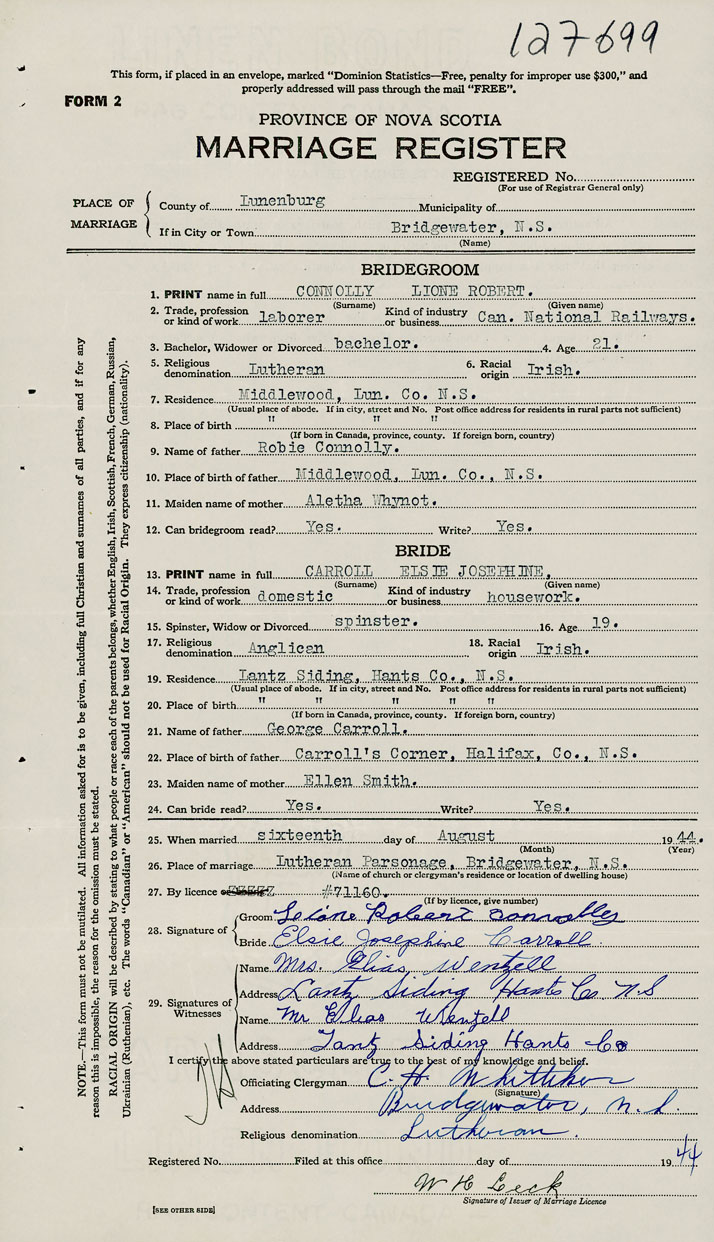 127699
This form, if placed in an envelope, marked "Dominion Statistics—Free, penalty for improper use $300," and
properly addressed will pass through the mail "FREE".
FORM 2
PROVINCE OF NOVA SCOTIA
MARRIAGE REGISTER
REGISTERED No.
(For use of Registrar General only)
PLACE OF MARRIAGE
County of Lunenburg Municipality of
If in City or Town Bridgewater, N.S.
(Name)
BRIDEGROOM
1. PRINT name in full CONNOLLY LIONE ROBERT.
(Surname) (Given name)
2. Trade, profession or kind of work laborer Kind of industry or business Can. National Railways.
3. Bachelor, Widower or Divorced bachelor. 4. Age 21.
5. Religious denomination Lutheran 6. Racial origin Irish.
7. Residence Middlewood, Lun. Co. N.S.
(Usual place of abode. If in city, street and No. Post office address for residents in rural parts not sufficient)
8. Place of birth " " "
(If born in Canada, province, county. If foreign born, country)
9. Name of father Robie Connolly.
10. Place of birth of father Middlewood, Lun. Co., N.S.
11. Maiden name of mother Aletha Whynot.
12. Can bridegroom read? Yes. Write? Yes.
BRIDE
13. PRINT name in full CARROLL ELSIE JOSEPHINE,
(Surname) (Given name)
14. Trade, profession or kind of work domestic Kind of industry or business housework.
15. Spinster, Widow or Divorced spinster. 16. Age 19.
17. Religious denomination Anglican 18. Racial origin Irish.
19. Residence Lantz Siding, Hants Co., N.S.
(Usual place of abode. If in city, street and No. Post office address for residents in rural parts not sufficient)
20. Place of birth " " " "
(If born in Canada, province, county. If foreign born, country)
21. Name of father George Carroll.
22. Place of birth of father Carroll's Corner, Halifax, Co., N.S.
23. Maiden name of mother Ellen Smith.
24. Can bride read? Yes. Write? Yes.
25. When married sixteenth day of August 1944.
(Month) (Year)
26. Place of marriage Lutheran Parsonage, Bridgewater, N.S.
(Name of church or clergyman's residence or location of dwelling house)
27. By licence #71160.
(If by licence, give number)
28. Signature of
Groom Leione Robert Connolley
Bride Elsie Josephine Carroll
29. Signatures of Witnesses
Name Mrs. Elias Wentzell
Address Lantz Siding Hants Co N S
Name Mr Elias Wentzell
Address Lantz Siding Hants Co
I certify the above stated particulars are true to the best of my knowledge and belief.
Officiating Clergyman C. H. Whitteker
(Signature)
Address Bridgewater, N.S.
Religious denomination Lutheran.
Registered No. Filed at this office day of 1944
W H Leck
Signature of Issuer of Marriage Licence
[SEE OTHER SIDE]
NOTE.—This form must not be mutilated. All information asked for is to be given, including full Christian and surnames of all parties, and if for any
reason this is impossible, the reason for the omission must be stated.
RACIAL ORIGIN will be described by stating to what people or race each of the parents belongs, whether English, Irish, Scottish, French, German, Russian,
Ukrainian (Ruthenian), etc. The words "Canadian" or "American" should not be used for Racial Origin. They express citizenship (nationality).